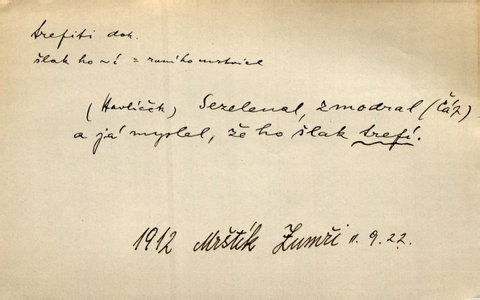 trefiti dok.
šlak ho ~í = raní ho mrtvice
(Havlíček) Sezelenal, zmodral (Čáp)
a já myslel, že ho šlak trefí.
1912 Mrštík Zumři II. 9. 22.